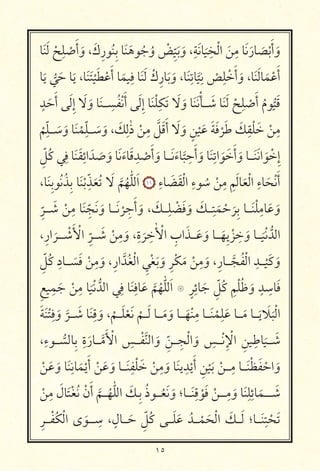 وَأَبْصَارَنَا مِنَ الْخِيَانَةِ، وَبَيِّضْ وُجُوهَنَا بِنُورِكَ، وَأَصْلِحْ لَنَا
أَعْمَالَنَا، وَأَخْلِصْ نِيَّاتِنَا، وَبَارِكْ لَنَا فِيمَا أَعْطَيْتَنَا، يَا حَيُّ يَا
قَيُّومُ أَصْلِحْ لَنَا شَأْنَنَا وَلَا تَكِلْنَا إِلَى أَنْفُسِنَا وَلَا إِلَى أَحَدٍ
مِنْ خَلْقِكَ طَرْفَةَ عَيْنٍ وَلَا أَقَلَّ مِنْ ذَلِكَ، وَسَلِّمْنَا وَسَلِّمْ
إِخْوَانَنَا وَأَخَوَاتِنَا وَأَحِبَّاءَنَا وَأَصْدِقَاءَنَا وَأَصْدِقَائَنَا فِي كُلِّ
أَنْحَاءِ الْعَالَمِ مِنْ سُوءِ الْقَضَاءِ اَللّٰهُمَّ لَا تُعَذِّبْنَا بِذُنُوبِنَا،
وَعَامِلْنَا بِرَحْمَتِكَ وَفَضْلِكَ، وَأَجِرْنَا وَنَجِّنَا مِنْ شَرِّ
الدُّنْيَا وَخِزْيِهَا وَعَذَابِ الْآخِرَةِ، وَمِنْ شَرِّ الْأَشْرَارِ،
وَكَيْدِ الْفُجَّارِ، وَمِنْ مَكْرِ وَبَغْيِ الْغُدَّارِ، وَمِنْ فَسَادِ كُلِّ
فَاسِدٍ وَظُلْمِ كُلِّ جَائِرٍ ۞ اَللّٰهُمَّ عَافِنَا فِي الدُّنْيَا مِنْ جَمِيعِ
الْبَلَايَا مَا عَلِمْنَا مِنْهَا وَمَا لَمْ نَعْلَمْ، وَقِنَا شَرَّ وَفِتْنَةَ
شَيَاطِينِ الْإِنْسِ وَالْجِنِّ وَالنَّفْسِ الْأَمَّارَةِ بِالسُّوءِ،
وَاحْفَظْنَا مِنْ بَيْنِ أَيْدِينَا وَعَنْ أَيْمَانِنَا وَمِنْ خَلْفِنَا وَعَنْ
شَمَائِلِنَا وَمِنْ فَوْقِنَا؛ وَنَعُوذُ بِكَ اَللّٰهُمَّ أَنْ نُغْتَالَ مِنْ
تَحْتِنَا؛ لَكَ الْحَمْدُ عَلَى كُلِّ حَالٍ، سِوَى الْكُفْرِ
١٥